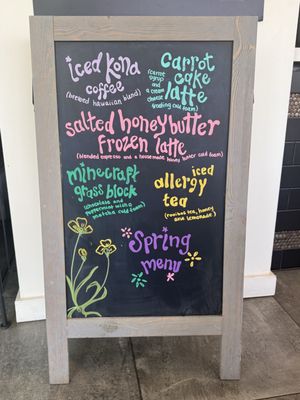 iced kona
coffee
(brewed hawaiian blend)
Carrot
Cake
latte
(carrot
syrup
and
a cream
cheese
frosting cold foam)
salted honeybutter
frozen latte
(blended espresso and a housemade honey butter cold foam)
minecraft
grass block
(chocolate and
peppermint with a
matcha cold foam)
iced
allergy
tea
(rooibos tea, honey
and lemonade)
Spring
menu